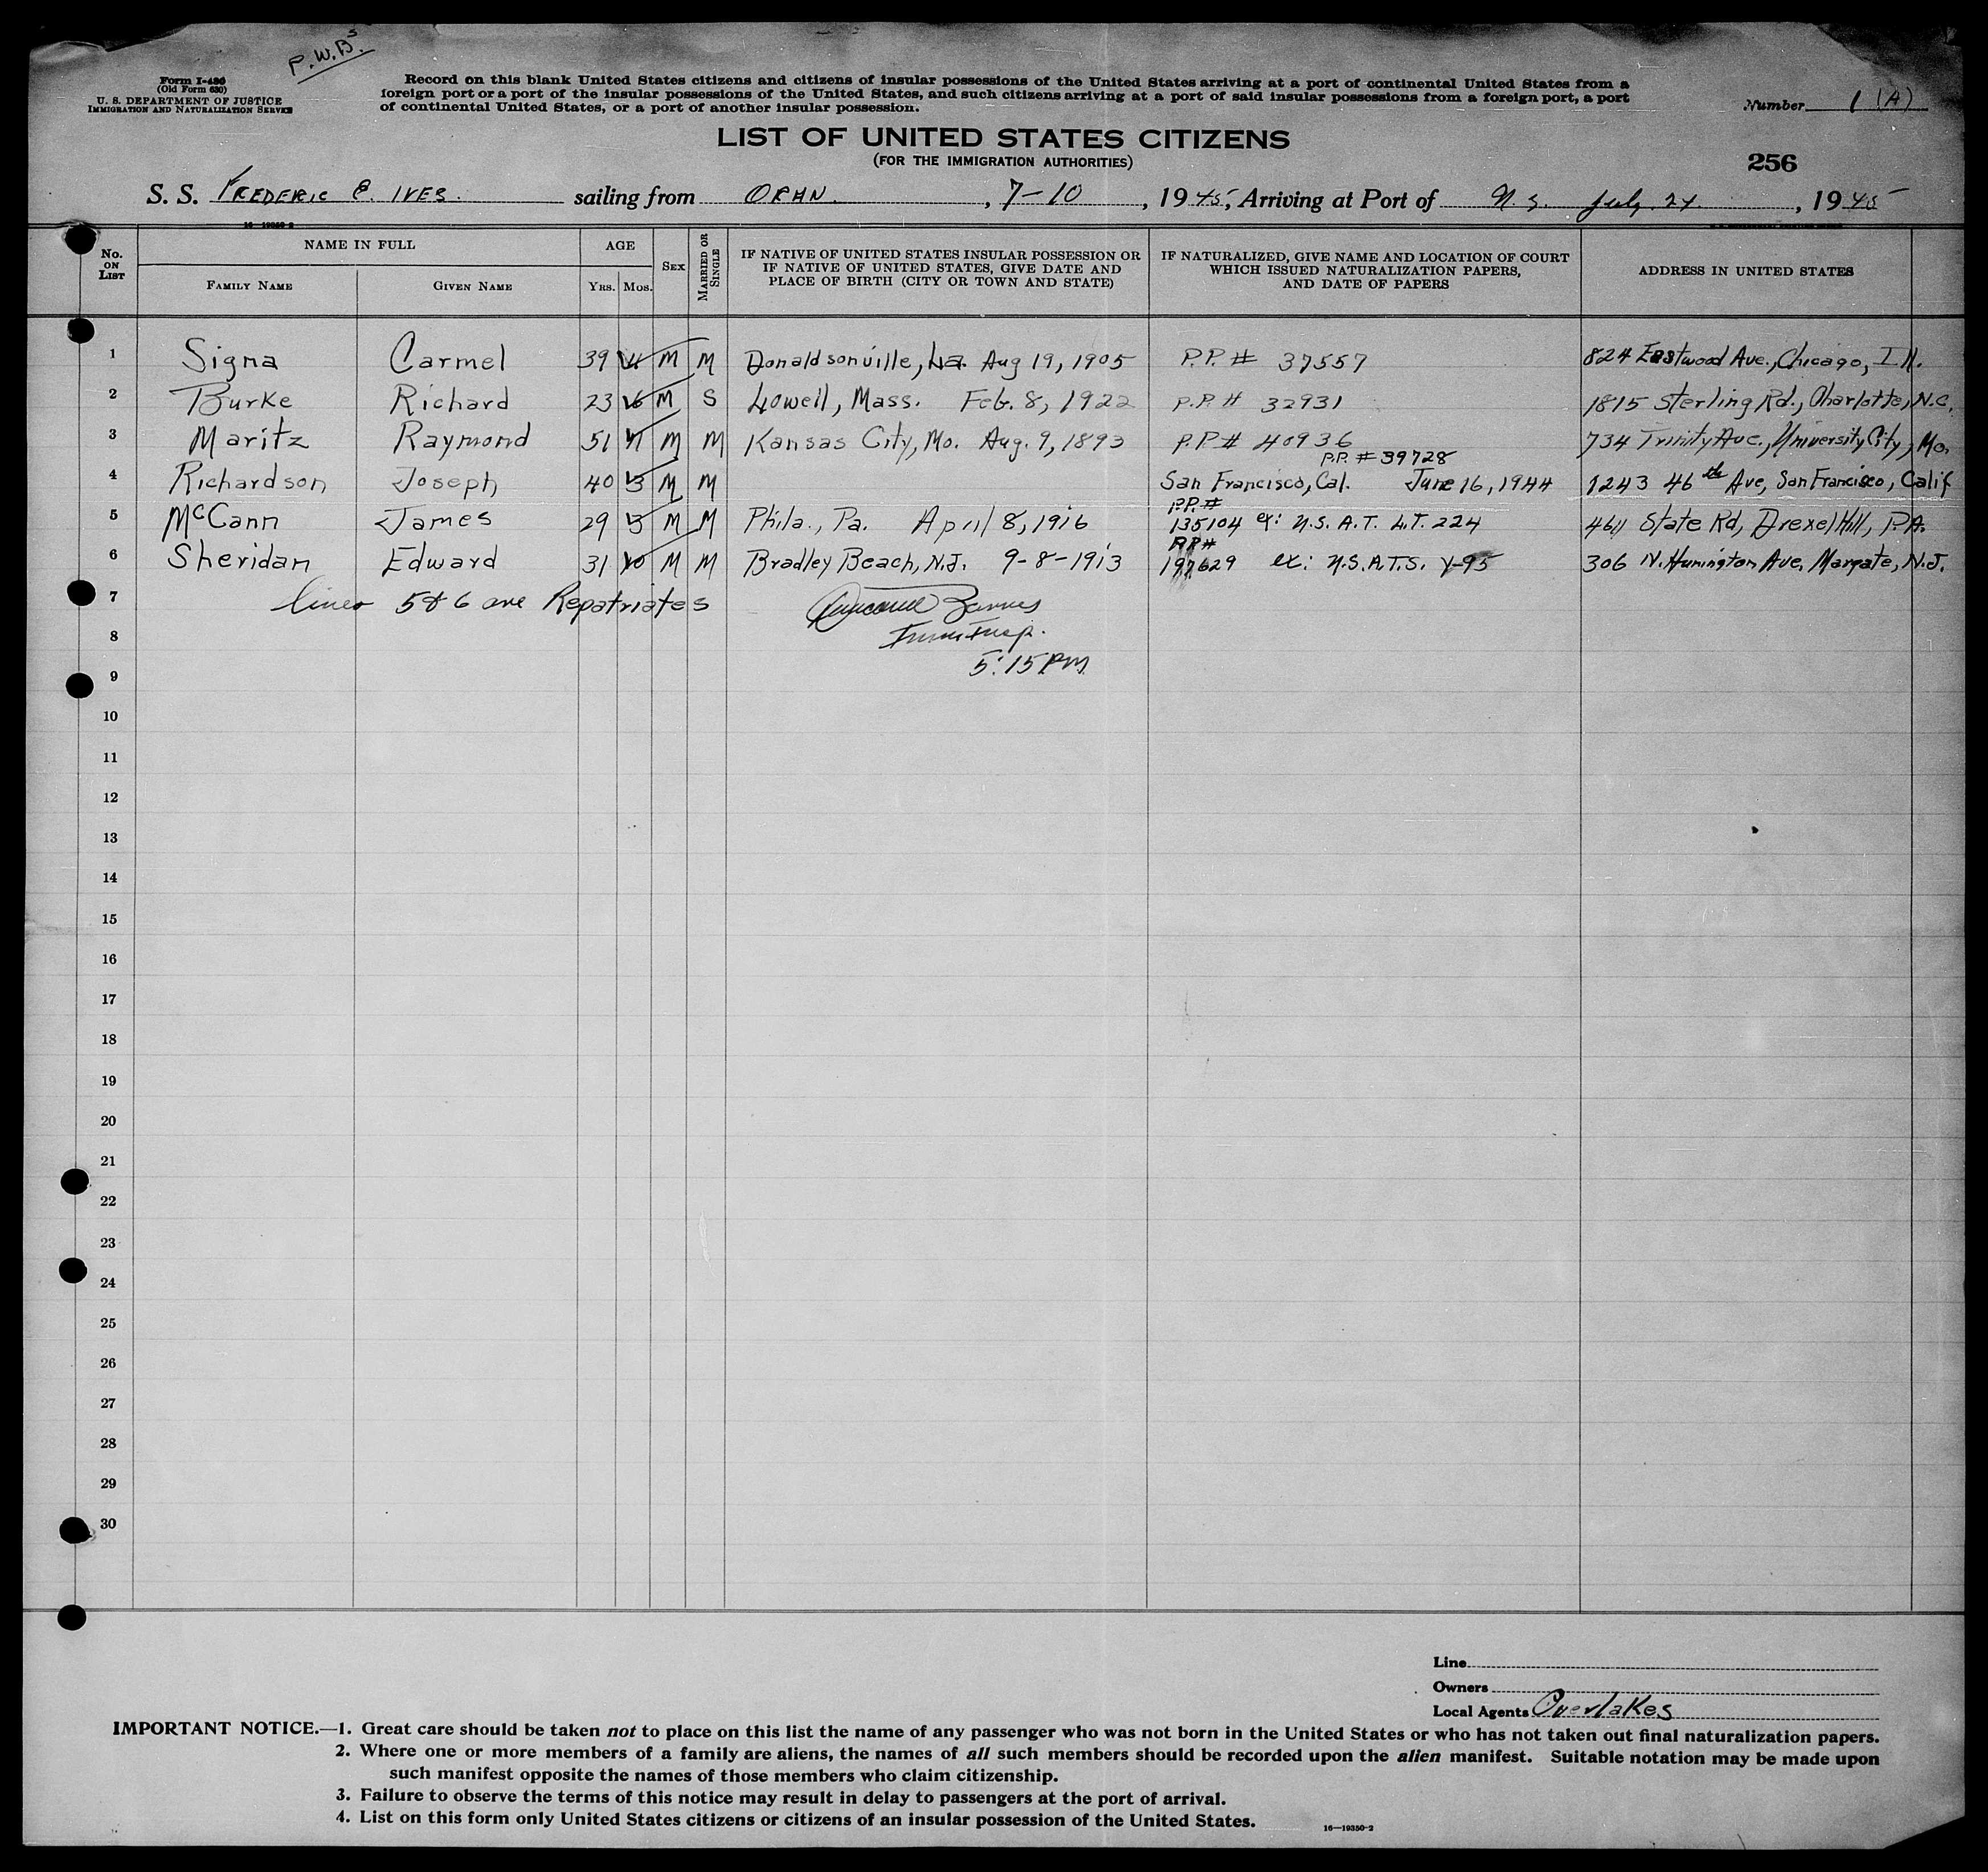 P.W.B's
Form I-430
(Old Form 630)
U. S. DEPARTMENT OF JUSTICE
IMMIGRATION AND NATURALIZATION SERVICE
Record on this blank United States citizens and citizens of insular possessions of the United States arriving at a port of continental United States from a
foreign port or a port of the insular possessions of the United States, and such citizens arriving at a port of said insular possessions from a foreign port, a port
of continental United States, or a port of another insular possession.
Number 1 (A)
LIST OF UNITED STATES CITIZENS
(FOR THE IMMIGRATION AUTHORITIES)
256
S. S. FREDERIC E. IVES. sailing from ORAN. , 7-10 , 1945, Arriving at Port of N.Y. July. 24. , 1945
16—19350-2
No. ON LIST
NAME IN FULL
FAMILY NAME
GIVEN NAME
AGE
YRS.
MOS.
SEX
MARRIED OR SINGLE
IF NATIVE OF UNITED STATES INSULAR POSSESSION OR
IF NATIVE OF UNITED STATES, GIVE DATE AND
PLACE OF BIRTH (CITY OR TOWN AND STATE)
IF NATURALIZED, GIVE NAME AND LOCATION OF COURT
WHICH ISSUED NATURALIZATION PAPERS,
AND DATE OF PAPERS
ADDRESS IN UNITED STATES
1 Signa Carmel 39 11 M M Donaldsonville, La. Aug 19, 1905 P.P. # 37557 824 Eastwood Ave., Chicago, Ill.
2 Burke Richard 23 M S Lowell, Mass. Feb. 8, 1922 P.P. # 32931 1815 Sterling Rd., Charlotte, N.C.
3 Maritz Raymond 51 11 M M Kansas City, Mo. Aug. 9, 1893 P.P. # 40936 734 Trinity Ave., University City, Mo.
P.P. # 39728
4 Richardson Joseph 40 3 M M San Francisco, Cal. June 16, 1944 1243 46th Ave, San Francisco, Calif
P.P. #
5 McCann James 29 3 M M Phila., Pa. April 8, 1916 135104 ex: U.S.A.T. L.T. 224 4611 State Rd, Drexel Hill, P.A.
P.P. #
6 Sheridan Edward 31 10 M M Bradley Beach, N.J. 9-8-1913 197629 ex: U.S.A.T.S. Y-95 306 N. Ave, Margate, N.J.
7 lines 5 & 6 are Repatriates
8 Imm Insp.
9 5:15 PM
10
11
12
13
14
15
16
17
18
19
20
21
22
23
24
25
26
27
28
29
30
Line
Owners
Local Agents Overlakes
IMPORTANT NOTICE.—1. Great care should be taken not to place on this list the name of any passenger who was not born in the United States or who has not taken out final naturalization papers.
2. Where one or more members of a family are aliens, the names of all such members should be recorded upon the alien manifest. Suitable notation may be made upon
such manifest opposite the names of those members who claim citizenship.
3. Failure to observe the terms of this notice may result in delay to passengers at the port of arrival.
4. List on this form only United States citizens or citizens of an insular possession of the United States.
16—19350-2